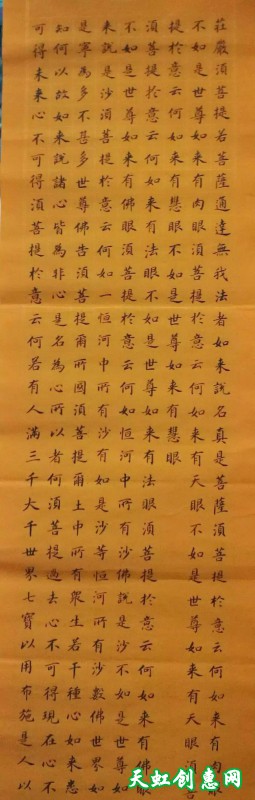 莊嚴須菩提若菩薩通達無我法者如来說名真是菩薩須菩提於意云何如来有肉眼
不如是世尊如来有肉眼須菩提於意云何如来有天眼不如是世尊如来有天眼須菩
提於意云何如来有慧眼不如是世尊如来有慧眼
須菩提於意云何如来有法眼不如是世尊如来有法眼須菩提於意云何如来有佛眼
不如是世尊如来有佛眼須菩提於意云何如恒河中所有沙佛說是沙不如是世尊如
来說是沙須菩提於意云何如一恒河中所有沙有如是沙等恒河所有沙數佛世界如
是寧為多不甚多世尊佛告須菩提爾所國須菩提爾土中所有眾生若干種心如来悉
知何以故如来說諸心皆為非心是名為心所以者何須菩提過去心不可得現在心不
可得未来心不可得須菩提於意云何若有人滿三千大千世界七寶以用布施是人以
天虹创惠网